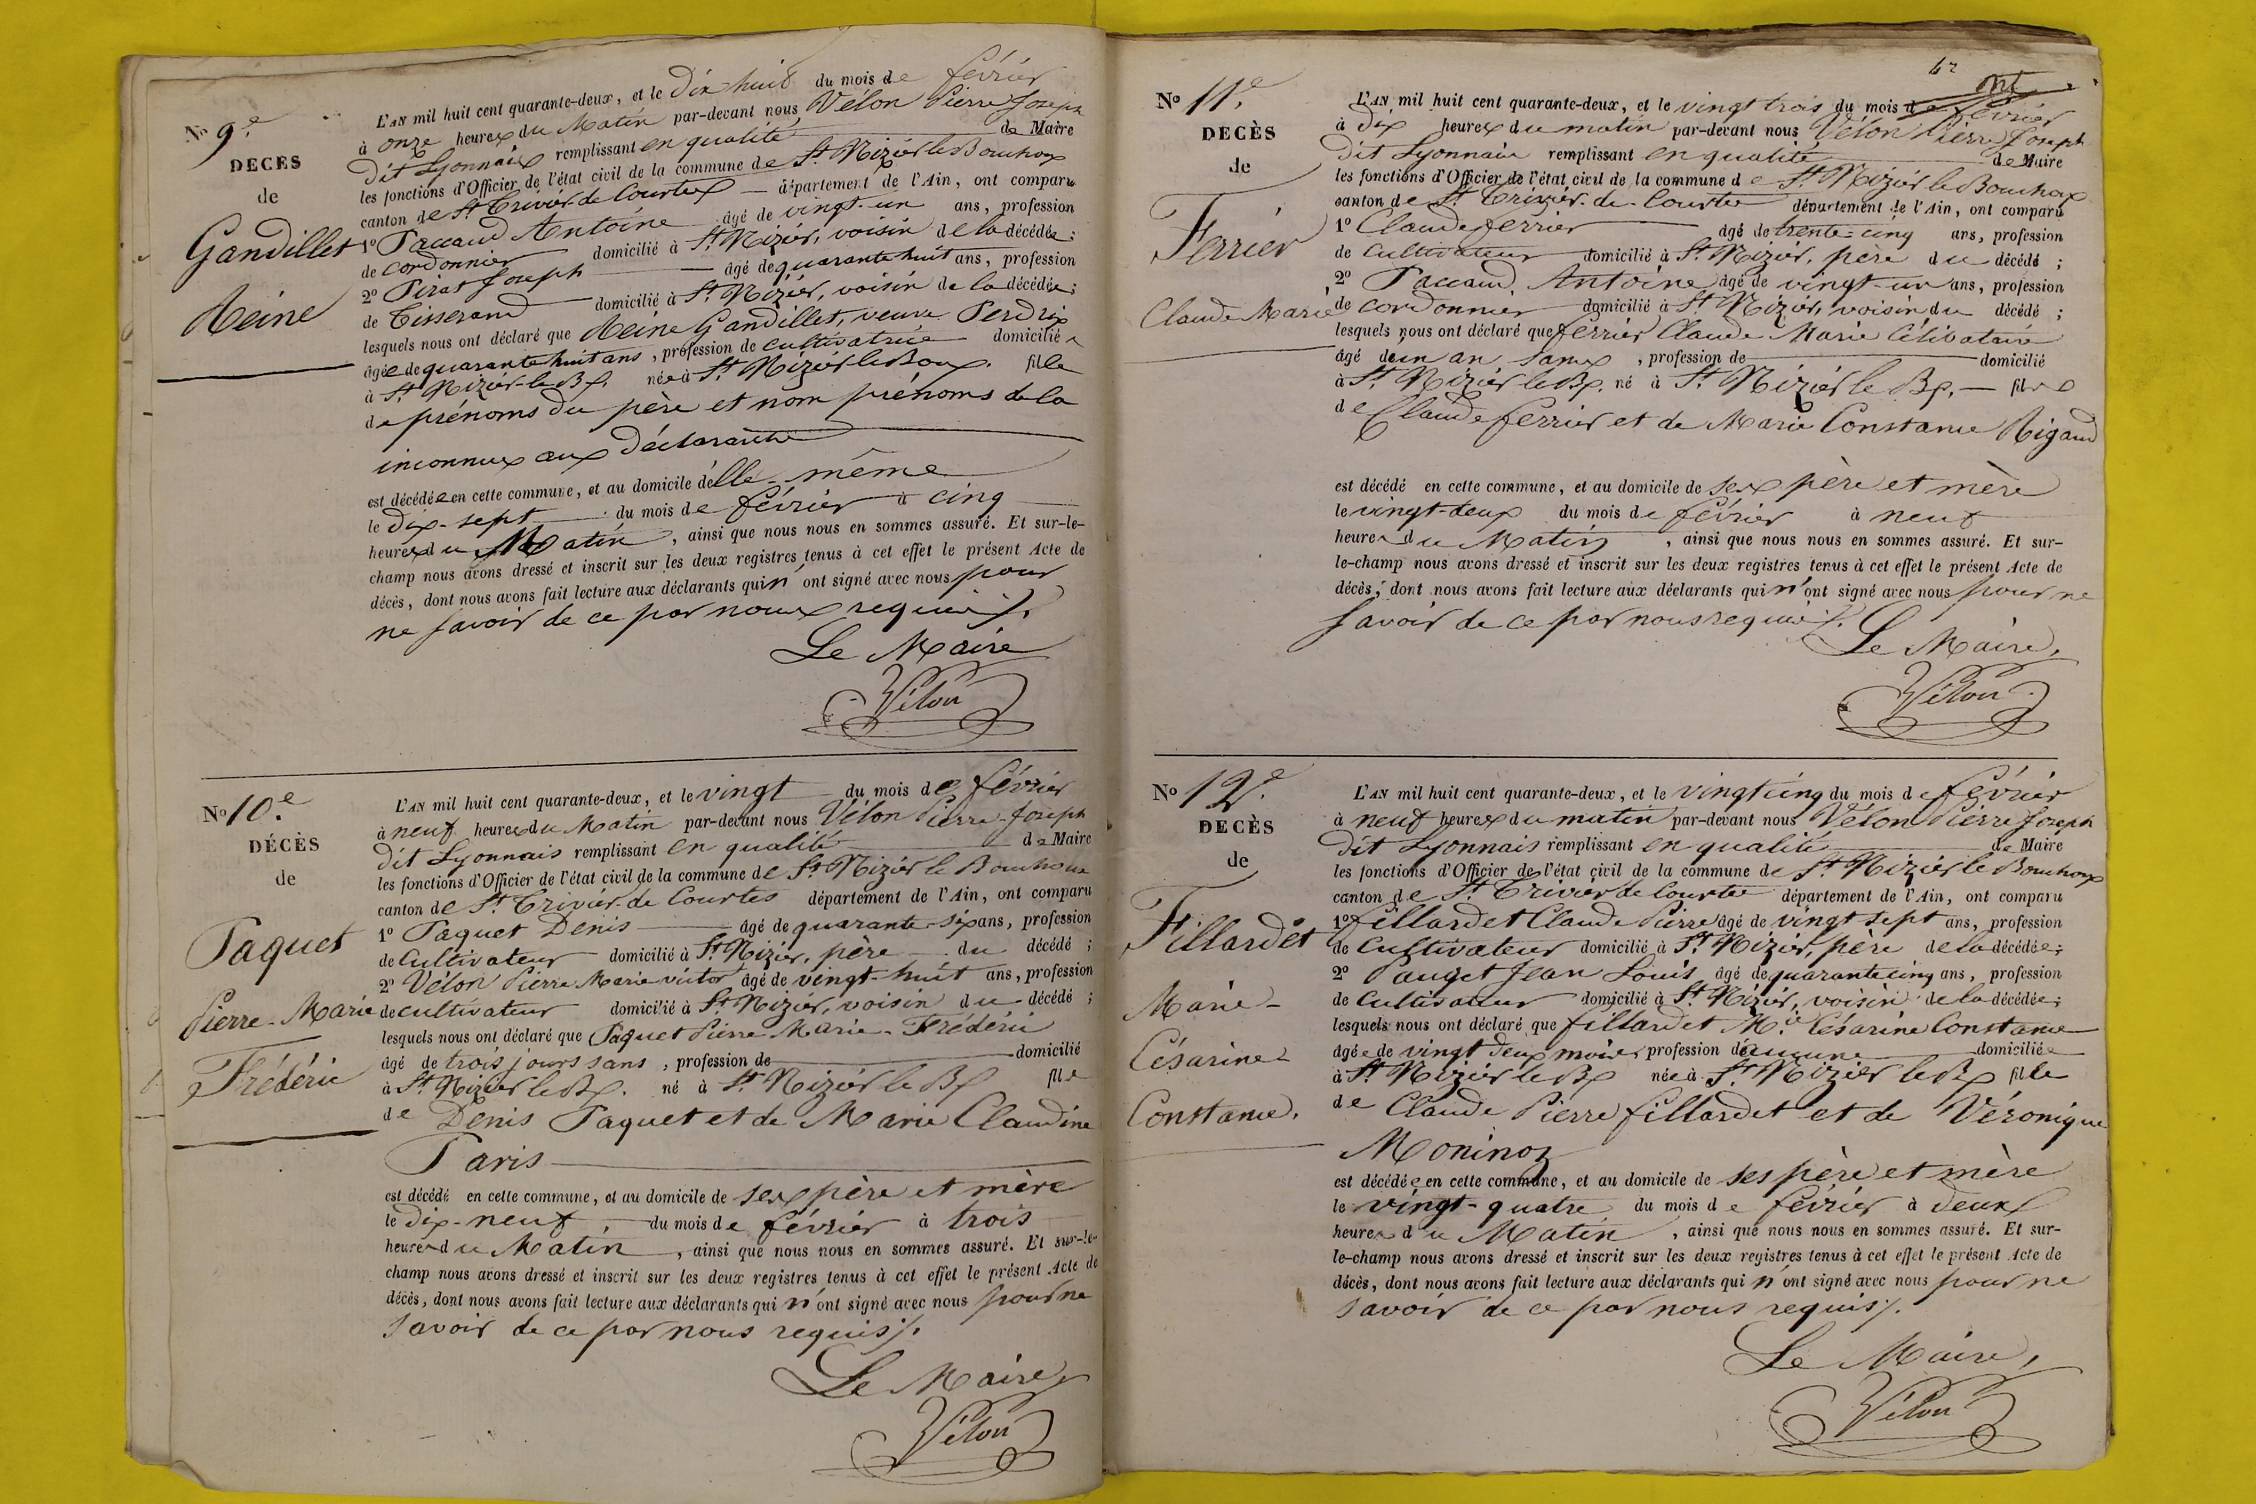 No 9.e
DECÈS
de
Gandillet
Reine
L'AN mil huit cent quarante-deux, et le Dix huit du mois de février
à onze heures du Matin par-devant nous Vélon Pierre Joseph
dit Lyonnais remplissant en qualité de Maire
les fonctions d'Officier de l'état civil de la commune de St Nizier le Bouchoux
canton de St Trivier de Courtes département de l'Ain, ont comparu
1o Paccaud Antoine âgé de vingt-un ans, profession
de cordonnier domicilié à St Nizier, voisin de la décédée;
2o Pirat Joseph âgé de quarante huit ans, profession
de Tisserand domicilié à St Nizier, voisin de la décédée;
lesquels nous ont déclaré que Reine Gandillet, veuve Perdrix
âgée de quarante huit ans, profession de cultivatrice domiciliée
à St Nizier-le-Bx. née à St Nizier le Boux. fille
de prénoms du père et nom prénoms de la
inconnus aux déclarants
est décédée en cette commune, et au domicile d'elle-même
le dix-sept du mois de février à cinq
heures du Matin, ainsi que nous nous en sommes assuré. Et sur-le-
champ nous avons dressé et inscrit sur les deux registres tenus à cet effet le présent Acte de
décès, dont nous avons fait lecture aux déclarants qui n'ont signé avec nous pour
ne savoir de ce par nous requis ./.
Le Maire
Vélon
No 10.e
DÉCÈS
de
Paquet
Pierre-Marie
Frédéric
L'AN mil huit cent quarante-deux, et le vingt du mois de février
à neuf heures du Matin par-devant nous Vélon Pierre-Joseph
dit Lyonnais remplissant en qualité de Maire
les fonctions d'Officier de l'état civil de la commune de St Nizier le Bouchoux
canton de St Trivier-de Courtes département de l'Ain, ont comparu
1o Paquet Denis âgé de quarante-six ans, profession
de Cultivateur domicilié à St Nizier, père du décédé;
2o Vélon Pierre Marie victor âgé de vingt-huit ans, profession
de cultivateur domicilié à St Nizier, voisin du décédé;
lesquels nous ont déclaré que Paquet Pierre-Marie-Frédéric
âgé de trois jours sans, profession de domicilié
à St Nizier le Bx. né à St Nizier le Bx fils
de Denis Paquet et de Marie Claudine
Paris
est décédé en cette commune, et au domicile de ses père et mère
le dix-neuf, du mois de février à trois
heures du Matin, ainsi que nous nous en sommes assuré. Et sur-le-
champ nous avons dressé et inscrit sur les deux registres tenus à cet effet le présent Acte de
décès, dont nous avons fait lecture aux déclarants qui n'ont signé avec nous pour ne
savoir de ce par nous requis ./.
Le Maire
Vélon
No 11.e
DECÈS
de
Ferrier
Claude Marie
L'AN mil huit cent quarante-deux, et le vingt trois du mois de février
à dix heures du matin par-devant nous Vélon Pierre Joseph
dit Lyonnais remplissant en qualité de Maire
les fonctions d'Officier de l'état civil de la commune de St Nizier le Bouchoux
canton de St Trivier-de-Courtes département de l'Ain, ont comparu
1o Claude ferrier âgé de trente-cinq ans, profession
de Cultivateur domicilié à St Nizier, père du décédé;
2o Paccaud Antoine âgé de vingt-un ans, profession
de cordonnier domicilié à St Nizier, voisin du décédé;
lesquels nous ont déclaré que ferrier Claude Marie Célibataire
âgé d'un an sans, profession de domicilié
à St Nizier le Bx. né à St Nizier le Bx. fils
de Claude ferrier et de Marie Constance Rigaud
est décédé en cette commune, et au domicile de ses père et mère
le vingt-deux du mois de février à neuf
heures du Matin, ainsi que nous nous en sommes assuré. Et sur-
le-champ nous avons dressé et inscrit sur les deux registres tenus à cet effet le présent Acte de
décès, dont nous avons fait lecture aux déclarants qui n'ont signé avec nous pour ne
savoir de ce par nous requis ./.
Le Maire,
Vélon
No 12.e
DECÈS
de
Fillardet
Marie-
Césarine-
Constance.
L'AN mil huit cent quarante-deux, et le vingt cinq du mois de février
à neuf heures du matin par-devant nous Vélon Pierre Joseph
dit Lyonnais remplissant en qualité de Maire
les fonctions d'Officier de l'état civil de la commune de St Nizier le Bouchoux
canton de St Trivier de Courtes département de l'Ain, ont comparu
1o fillardet Claude Pierre âgé de vingt sept ans, profession
de Cultivateur domicilié à St Nizier, père de la décédée;
2o Pauget Jean Louis âgé de quarante cinq ans, profession
de Cultivateur domicilié à St Nizier, voisin de la décédée;
lesquels nous ont déclaré que fillardet M.ie Césarine Constance
âgée de vingt deux mois profession d'aucune domiciliée
à St Nizier le Bx née à St Nizier le Bx fille
de Claude Pierre fillardet et de Véronique
Moninoz
est décédée en cette commune, et au domicile de ses père et mère
le vingt-quatre du mois de février à deux
heures du Matin, ainsi que nous nous en sommes assuré. Et sur-
le-champ nous avons dressé et inscrit sur les deux registres tenus à cet effet le présent Acte de
décès, dont nous avons fait lecture aux déclarants qui n'ont signé avec nous pour ne
savoir de ce par nous requis ./.
Le Maire,
Vélon